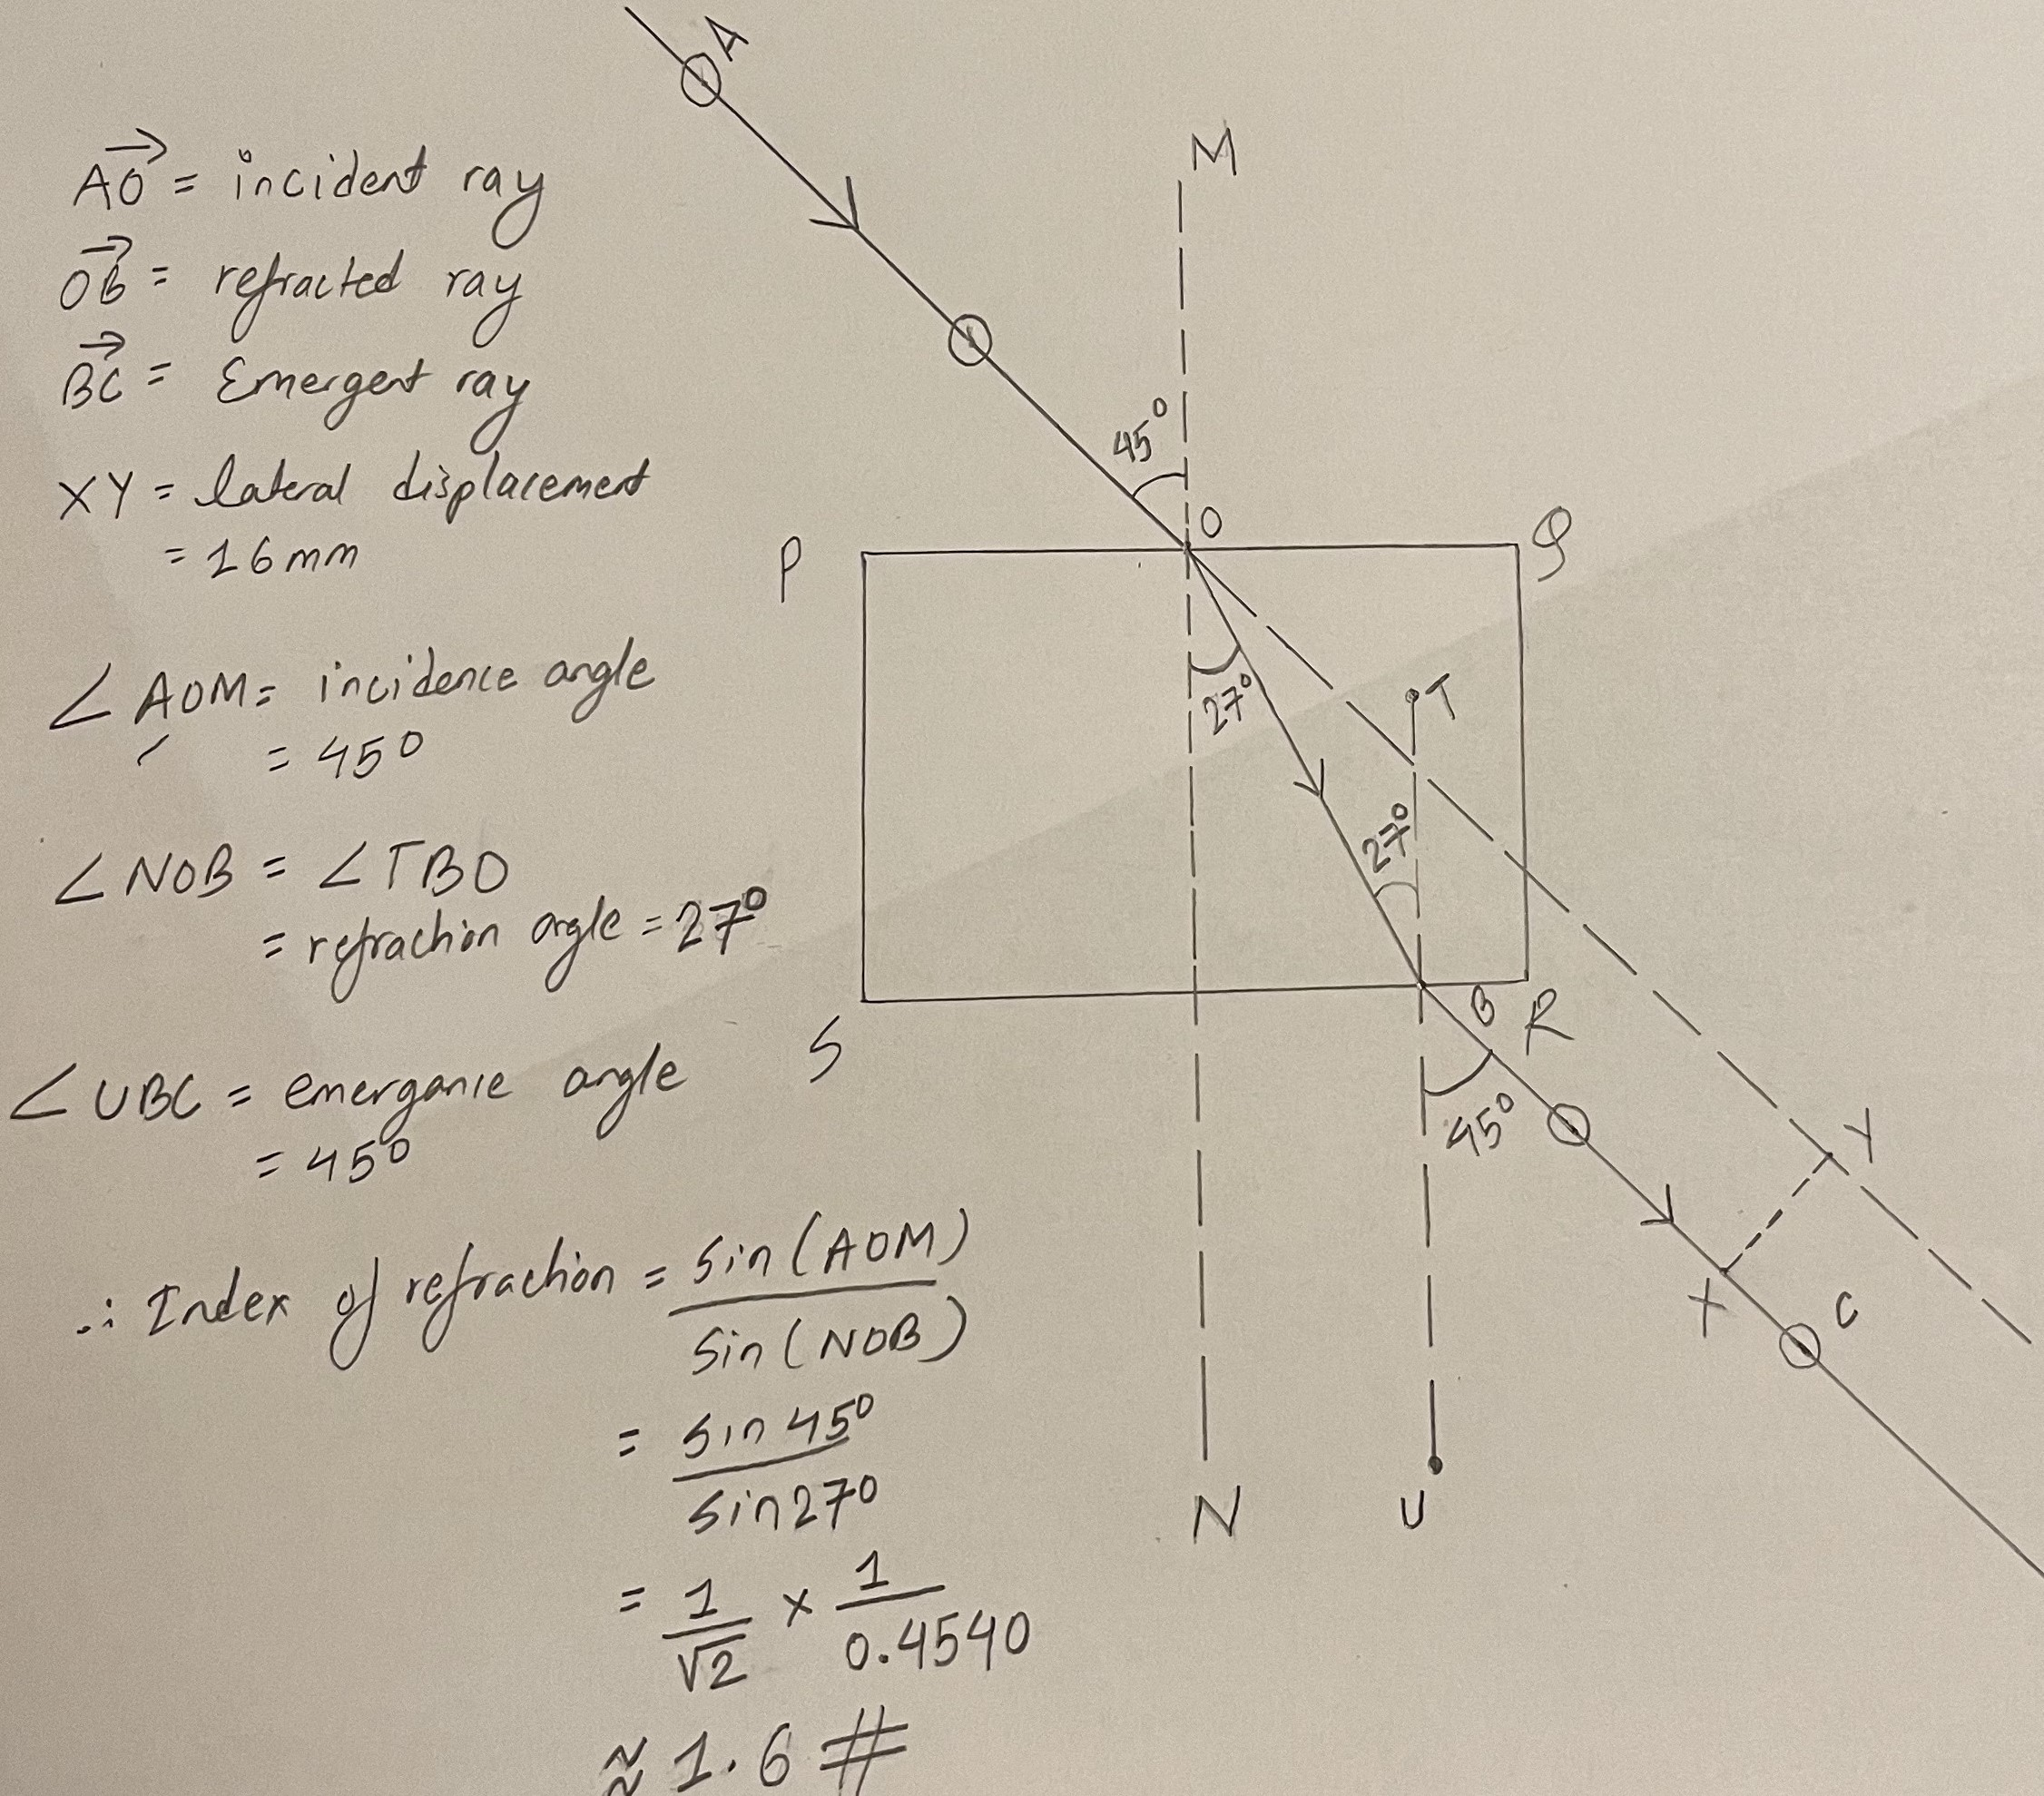 AO = incident ray
OB = refracted ray
BC = Emergent ray
XY = lateral displacement
= 16mm
∠ AOM = incidence angle
= 45°
∠ NOB = ∠ TBO
= refraction angle = 27°
∠ UBC = emerganie angle
= 45°
∴ Index of refraction = Sin (AOM)
Sin (NOB)
= Sin 45°
Sin 27°
= 1 × 1
√2 0.4540
≈ 1.6 #
A
M
45°
O
P
Q
27°
T
27°
S
B
R
45°
Y
X
C
N
U